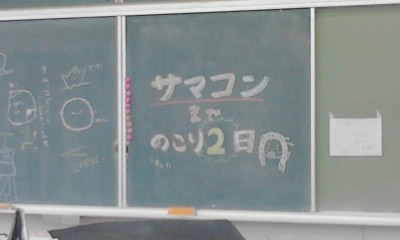 サマコン
まで
のこり2日